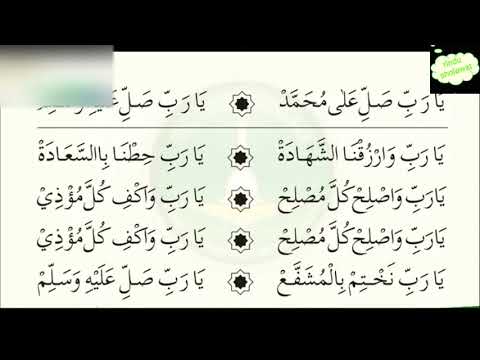 rindu
sholawat
يَا رَبِّ صَلِّ عَلٰى مُحَمَّدْ ۞ يَا رَبِّ صَلِّ عَلَيْهِ
يَا رَبِّ وَارْزُقْنَا الشَّهَادَةْ ۞ يَا رَبِّ حِطْنَا بِاالسَّعَادَةْ
يَارَبِّ وَاصْلِحْ كُلَّ مُصْلِحْ ۞ يَا رَبِّ وَآكْفِ كُلَّ مُؤْذِيْ
يَارَبِّ وَاصْلِحْ كُلَّ مُصْلِحْ ۞ يَا رَبِّ وَآكْفِ كُلَّ مُؤْذِيْ
يَا رَبِّ نَخْتِمْ بِالْمُشَفَّعْ ۞ يَا رَبِّ صَلِّ عَلَيْهِ وَسَلِّمْ